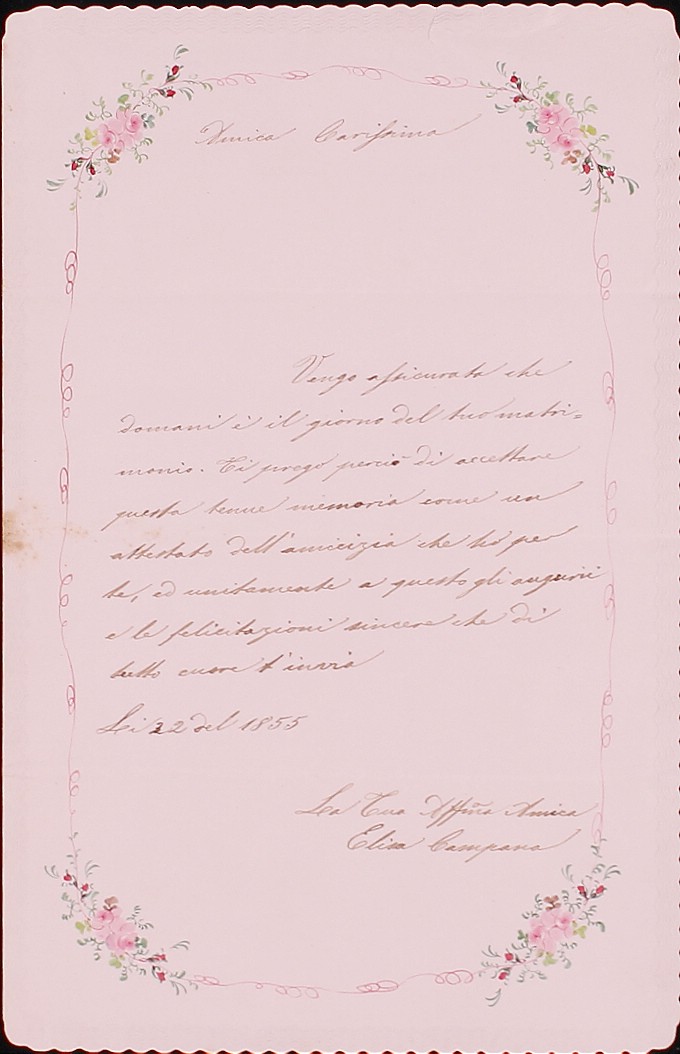 Amica Carissima
Vengo assicurata che
domani è il giorno del tuo matri=
monio. Ti prego perciò di accettare
questa tenue memoria come un
attestato dell'amicizia che hò per
te, ed unitamente a questo gli augurii
e le felicitazioni sincere che di
tutto cuore t'invia
Li 22 del 1855
La Tua Affma Amica
Elisa Campana